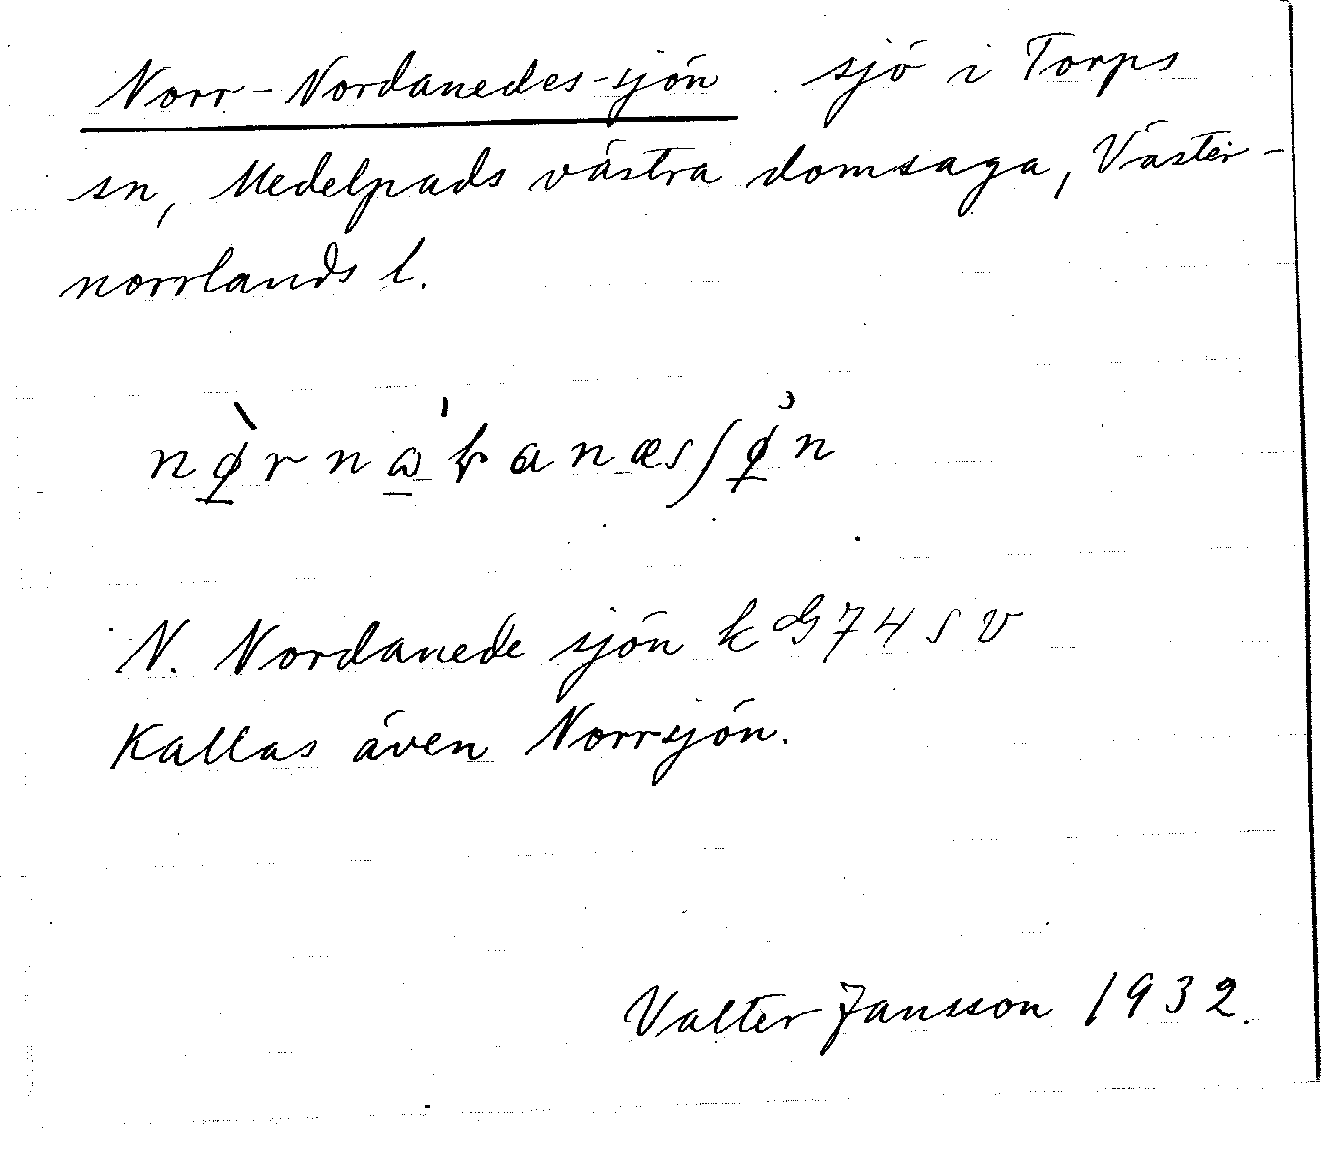 Norr-Nordanedes-sjön sjö i Torps
sn, Medelpads västra domsaga, Väster-
norrlands l.
N. Nordanede sjön k G 74 s v
Kallas även Norrsjön.
Valter Jansson 1932.